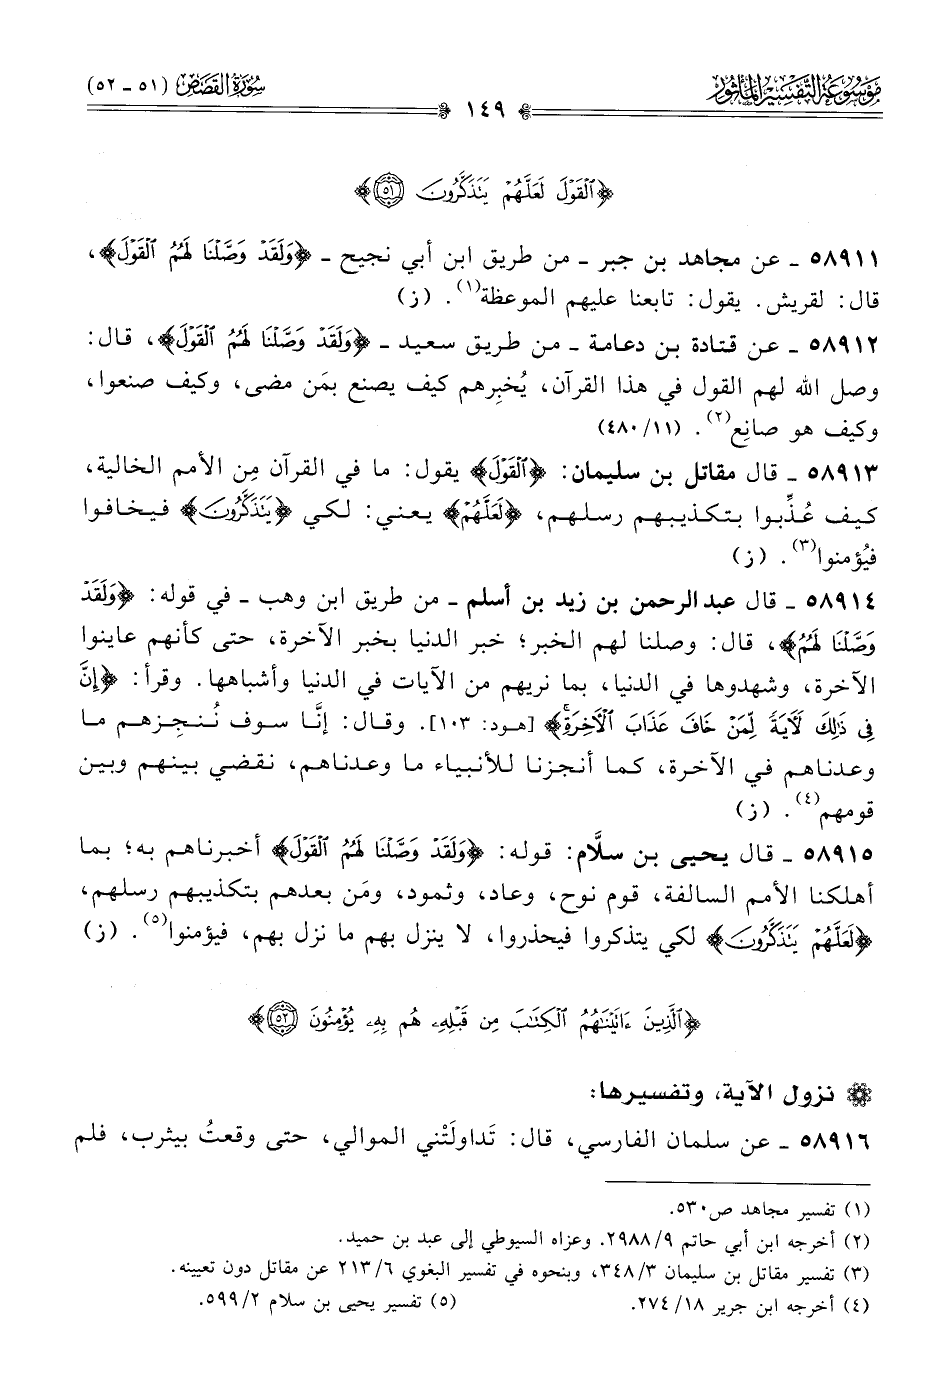 موسوعة التفسير المأثور
سورة القصص (٥١ - ٥٢)
١٤٩
﴿ٱلْقَوْلَ لَعَلَّهُمْ يَتَذَكَّرُونَ ٥١﴾
٥٨٩١١ - عن مجاهد بن جبر - من طريق ابن أبي نجيح - ﴿وَلَقَدْ وَصَّلْنَا لَهُمُ ٱلْقَوْلَ﴾،
قال: لقريش. يقول: تابعنا عليهم الموعظة(١). (ز)
٥٨٩١٢ - عن قتادة بن دعامة - من طريق سعيد - ﴿وَلَقَدْ وَصَّلْنَا لَهُمُ ٱلْقَوْلَ﴾، قال:
وصل الله لهم القول في هذا القرآن، يُخبِرهم كيف يصنع بمَن مضى، وكيف صنعوا،
وكيف هو صانِع(٢). (٤٨٠/١١)
٥٨٩١٣ - قال مقاتل بن سليمان: ﴿ٱلْقَوْلَ﴾ يقول: ما في القرآن مِن الأمم الخالية،
كيف عُذِّبوا بتكذيبهم رسلهم، ﴿لَعَلَّهُمْ﴾ يعني: لكي ﴿يَتَذَكَّرُونَ﴾ فيخافوا
فيُؤمنوا(٣). (ز)
٥٨٩١٤ - قال عبد الرحمن بن زيد بن أسلم - من طريق ابن وهب - في قوله: ﴿وَلَقَدْ
وَصَّلْنَا لَهُمُ﴾، قال: وصلنا لهم الخبر؛ خبر الدنيا بخبر الآخرة، حتى كأنهم عاينوا
الآخرة، وشهدوها في الدنيا، بما نريهم من الآيات في الدنيا وأشباهها. وقرأ: ﴿إِنَّ
فِي ذَٰلِكَ لَآيَةً لِّمَنْ خَافَ عَذَابَ ٱلْآخِرَةِ﴾ [هود: ١٠٣]. وقال: إنَّا سوف نُنجِزهم ما
وعدناهم في الآخرة، كما أنجزنا للأنبياء ما وعدناهم، نقضي بينهم وبين
قومهم(٤). (ز)
٥٨٩١٥ - قال يحيى بن سلَّام: قوله: ﴿وَلَقَدْ وَصَّلْنَا لَهُمُ ٱلْقَوْلَ﴾ أخبرناهم به؛ بما
أهلكنا الأمم السالفة، قوم نوح، وعاد، وثمود، ومَن بعدهم بتكذيبهم رسلهم،
﴿لَعَلَّهُمْ يَتَذَكَّرُونَ﴾ لكي يتذكروا فيحذروا، لا ينزل بهم ما نزل بهم، فيؤمنوا(٥). (ز)
﴿ٱلَّذِينَ ءَاتَيْنَٰهُمُ ٱلْكِتَٰبَ مِن قَبْلِهِۦ هُم بِهِۦ يُؤْمِنُونَ ٥٢﴾
نزول الآية، وتفسيرها:
٥٨٩١٦ - عن سلمان الفارسي، قال: تَداولَتْني الموالي، حتى وقعتُ بيثرب، فلم
(١) تفسير مجاهد ص٥٣٠.
(٢) أخرجه ابن أبي حاتم ٢٩٨٨/٩. وعزاه السيوطي إلى عبد بن حميد.
(٣) تفسير مقاتل بن سليمان ٣٤٨/٣، وبنحوه في تفسير البغوي ٢١٣/٦ عن مقاتل دون تعيينه.
(٤) أخرجه ابن جرير ٢٧٤/١٨. (٥) تفسير يحيى بن سلام ٥٩٩/٢.